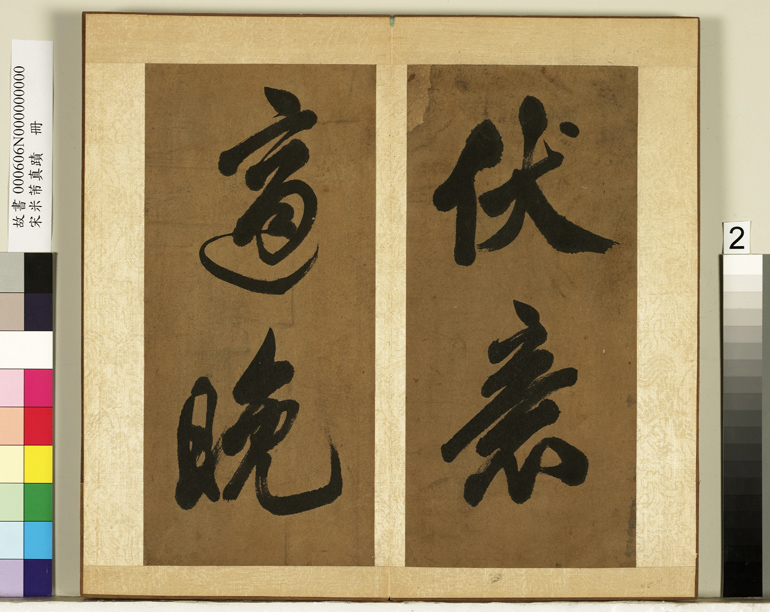 故書 000606N000000000
宋米芾真蹟 冊
伏
晚
2